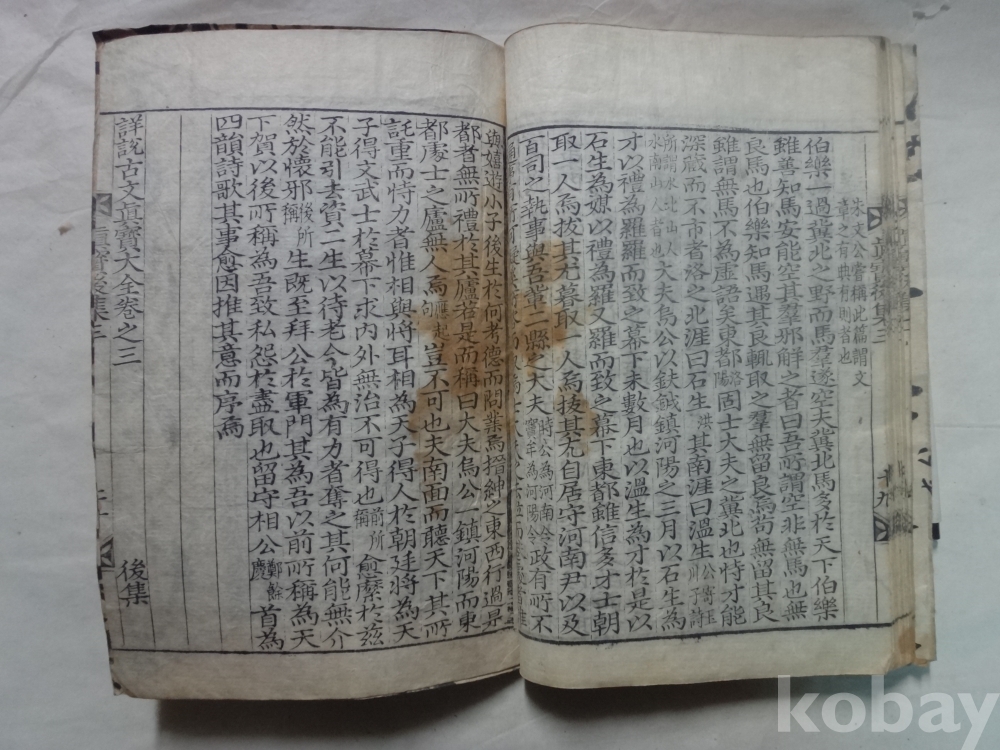 朱文公嘗稱此篇謂文
章之有典有則者也
伯樂一過冀北之野而馬羣遂空夫冀北馬多於天下伯樂
雖善知馬安能空其羣邪解之者曰吾所謂空非無馬也無
良馬也伯樂知馬遇其良輒取之羣無留良焉苟無留其良
雖謂無馬不為虛語矣東都洛固士大夫之冀北也恃才能
深藏而不市者洛之北涯曰石生洪其南涯曰溫生
所謂水北山人水南山人者也大夫烏公以鈇鉞鎮河陽之三月以石生為
才以禮為羅羅而致之幕下未數月也以溫生為才於是以
石生為媒以禮為羅又羅而致之幕下東都雖信多才士朝
取一人焉拔其尤暮取一人焉拔其尤自居守河南尹以及
百司之執事與吾輩二縣之大夫時公為河南令竇牟為河陽令政有所不
與嬉遊小子後生於何考德而問業焉搢紳之東西行過是
都者無所禮於其廬若是而稱曰大夫烏公一鎮河陽而東
都處士之廬無人焉應起句豈不可也夫南面而聽天下其所
託重而恃力者惟相與將耳相為天子得人於朝廷將為天
子得文武士於幕下求內外無治不可得也前所稱愈縻於玆
不能引去資二生以待老今皆為有力者奪之其何能無介
然於懷邪後所稱生既至拜公於軍門其為吾以前所稱為天
下賀以後所稱為吾致私怨於盡取也留守相公鄭餘慶首為
四韻詩歌其事愈因推其意而序焉
詳說古文眞寶大全卷之三 後集
kobay